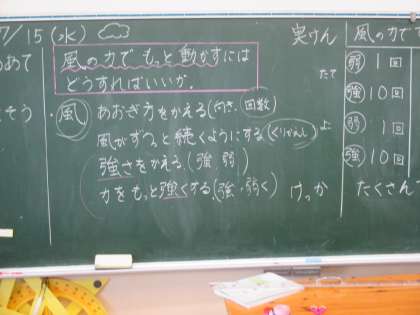 7/15(水)
めあて
風の力で もっと動かすには
どうすればいいか。
そう
・風 あおぎ方をかえる(向き、回数)
風がずっと続くようにする(くりかえし)
強さをかえる。(強、弱)
力をもっと強くする。(強、弱く)
実けん
たて
上
けっか
風の力です
弱 1回
強 10回
弱 1回
強 10回
たくさんで